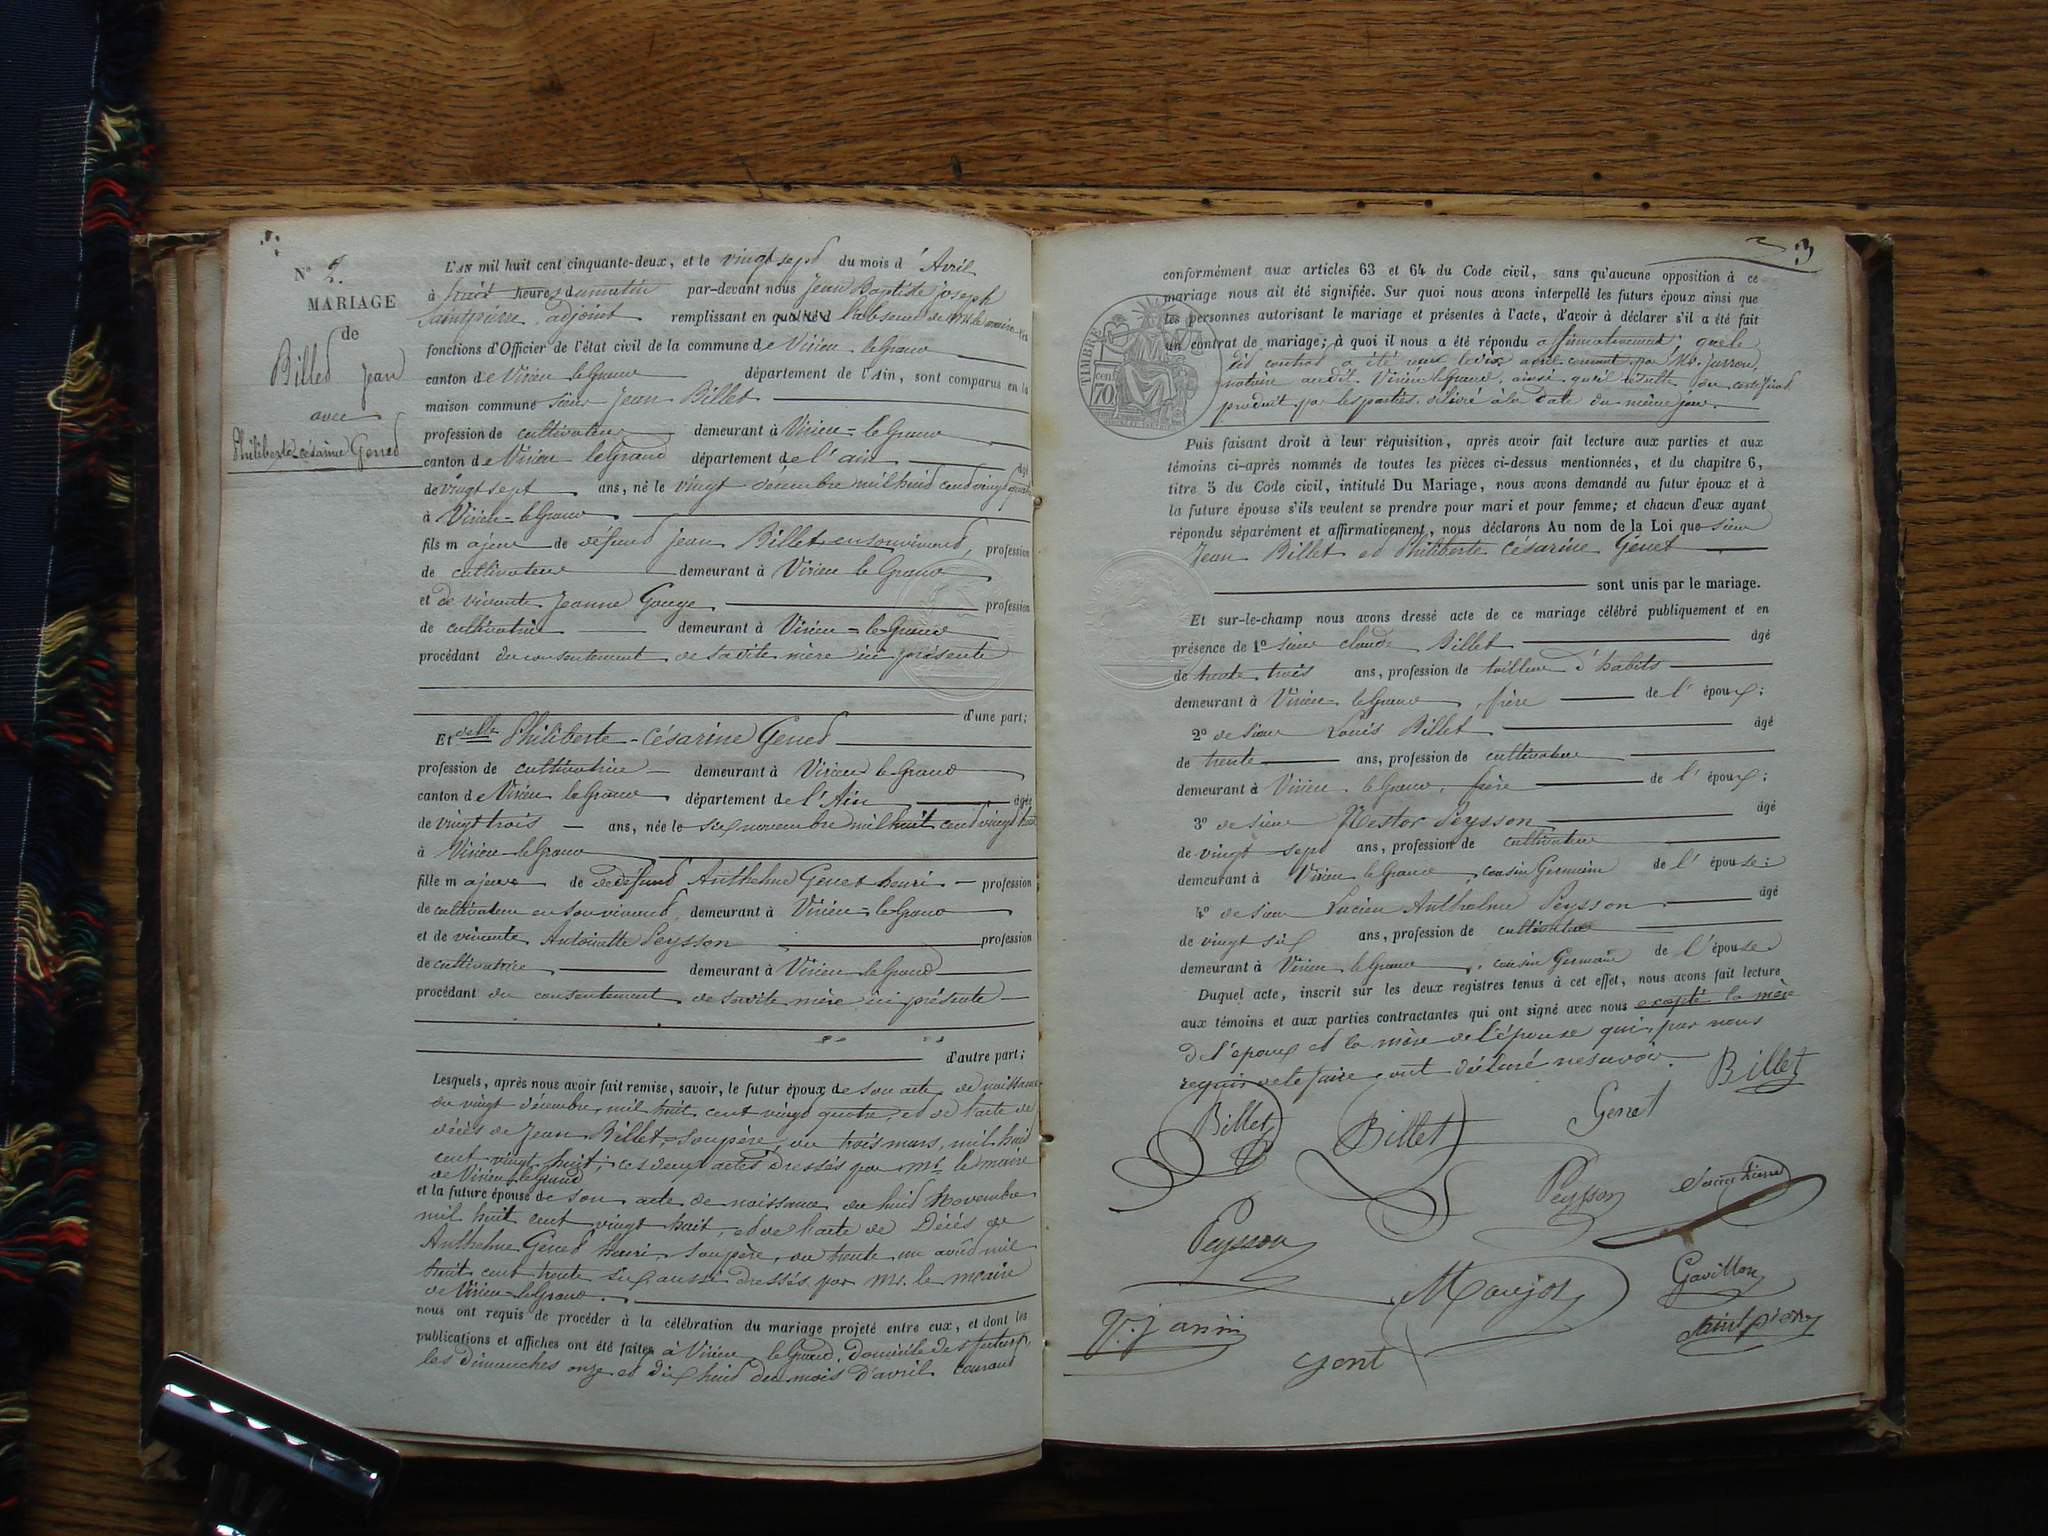 N° 2.
MARIAGE
de
Billet Jean
avec
Philiberte-césarine Genet
L'AN mil huit cent cinquante-deux, et le vingt sept du mois d'Avril
à huit heures du matin par-devant nous Jean Baptiste joseph
Saintpierre, adjoint remplissant en l'absence de Mr. le maire les
fonctions d'Officier de l'état civil de la commune de Virieu-le-Grand
canton de Virieu le Grand département de l'Ain, sont comparus en la
maison commune sieur Jean Billet
profession de cultivateur demeurant à Virieu=le-Grand
canton de Virieu le Grand département de l'ain âgé
de vingt sept ans, né le vingt décembre mil huit cent vingt quatre
à Virieu=le-Grand
fils majeur de défunt Jean Billet en son vivant, profession
de cultivateur demeurant à Virieu le Grand
et de vivante Jeanne Gouge profession
de cultivatrice demeurant à Virieu=le-Grand
procédant du consentement de sa dite mère ici présente
d'une part;
Et delle Philiberte-Césarine Genet
profession de cultivatrice demeurant à Virieu le Grand
canton de Virieu le Grand département de l'Ain âgée
de vingt trois ans, née le six novembre mil huit cent vingt huit
à Virieu-le-Grand
fille majeure de défunt Anthelme Genet henri profession
de cultivateur en son vivant, demeurant à Virieu=le-Grand
et de vivante Antoinette Peysson profession
de cultivatrice demeurant à Virieu-le-Grand
procédant du consentement de sa dite mère ici présente
d'autre part;
Lesquels, après nous avoir fait remise, savoir, le futur époux de son acte de naissance
du vingt décembre, mil huit cent vingt quatre, et de l'acte de
décès de Jean Billet, son père, du trois mars, mil huit
cent vingt huit; ces deux actes dressés par Mr. le maire
de Virieu-le-Grand
et la future épouse de son acte de naissance du huit Novembre
mil huit cent vingt huit, et de l'acte de Décès de
Anthelme Genet henri, son père, du trente un août mil
huit cent trente six aussi dressés par Mr. le maire
de Virieu-le-Grand.
nous ont requis de procéder à la célébration du mariage projeté entre eux, et dont les
publications et affiches ont été faites à Virieu le Grand, Domicile des futurs,
les Dimanches onze et Dix huit du mois d'avril courant
3
conformément aux articles 63 et 64 du Code civil, sans qu'aucune opposition à ce
mariage nous ait été signifiée. Sur quoi nous avons interpellé les futurs époux ainsi que
les personnes autorisant le mariage et présentes à l'acte, d'avoir à déclarer s'il a été fait
un contrat de mariage; à quoi il nous a été répondu affirmativement; que le
dit contrat a été reçu le dix avril courant, par Me.
notaire au dit Virieu le Grand, ainsi qu'il résulte du certificat
produit par les parties, délivré à la date du même jour.
TIMBRE
70 cen
Puis faisant droit à leur réquisition, après avoir fait lecture aux parties et aux
témoins ci-après nommés de toutes les pièces ci-dessus mentionnées, et du chapitre 6,
titre 5 du Code civil, intitulé Du Mariage, nous avons demandé au futur époux et à
la future épouse s'ils veulent se prendre pour mari et pour femme; et chacun d'eux ayant
répondu séparément et affirmativement, nous déclarons Au nom de la Loi que sieur
Jean Billet et Philiberte césarine Genet
sont unis par le mariage.
Et sur-le-champ nous avons dressé acte de ce mariage célébré publiquement et en
présence de 1° sieur claude Billet âgé
de trente trois ans, profession de tailleur d'habits
demeurant à Virieu le Grand, frère de l'époux;
2° de sieur Louis Billet âgé
de trente ans, profession de cultivateur
demeurant à Virieu le Grand, frère de l'époux;
3° de sieur Nestor Peysson âgé
de vingt sept ans, profession de cultivateur
demeurant à Virieu le Grand, cousin Germain de l'épouse;
4° de sieur Lucien Anthelme Peysson âgé
de vingt six ans, profession de cultivateur
demeurant à Virieu le Grand, cousin Germain de l'épouse
Duquel acte, inscrit sur les deux registres tenus à cet effet, nous avons fait lecture
aux témoins et aux parties contractantes qui ont signé avec nous excepté la mère
de l'époux et la mère de l'épouse qui, par nous
requis de le faire, ont déclaré ne savoir.
Billet
Billet
Billet
Genet
Peysson
Saintpierre
Peysson
Maujot
Gavillon
V. Janin
Gent
Saintpierre